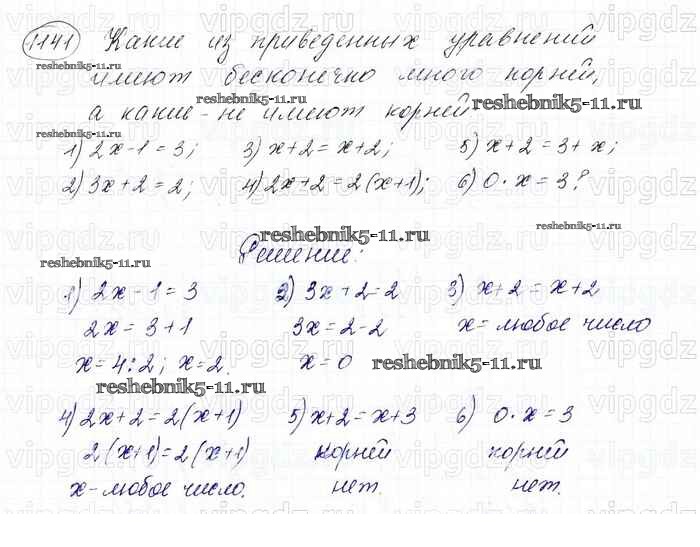 1141 Какие из приведенных уравнений
имеют бесконечно много корней,
reshebnik5-11.ru
reshebnik5-11.ru
reshebnik5-11.ru
а какие - не имеют корней
reshebnik5-11.ru
1) 2x-1=3; 3) x+2=x+2; 5) x+2=3+x;
2) 3x+2=2; 4) 2x+2=2(x+1); 6) 0·x=3?
reshebnik5-11.ru
reshebnik5-11.ru
Решение:
reshebnik5-11.ru
1) 2x-1=3 2) 3x+2-2 3) x+2=x+2
2x=3+1 3x=2-2 x=любое число
x=4:2; x=2. x=0 reshebnik5-11.ru
reshebnik5-11.ru
4) 2x+2=2(x+1) 5) x+2=x+3 6) 0·x=3
2(x+1)=2(x+1) корней корней
x-любое число. нет. нет.
vipgdz.ru